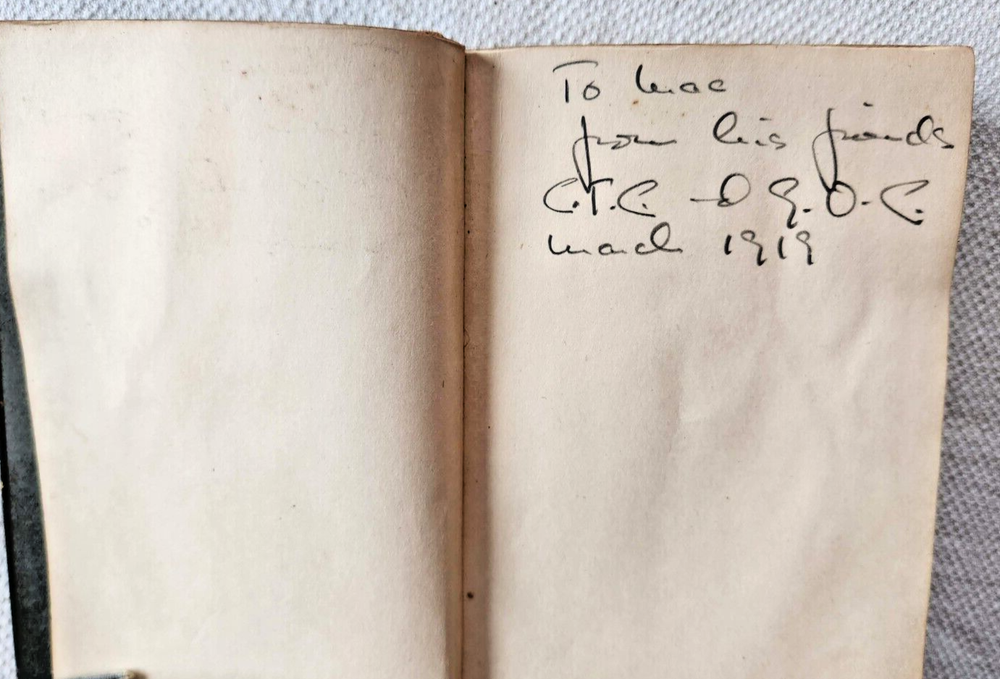 To Mac
from his friends
C.T.C. and G.O.C.
March 1919